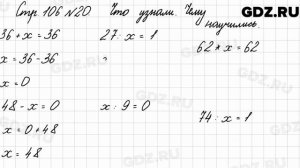 GDZ.RU
Стр. 106 № 20. Что узнали. Чему научились
36 + x = 36
x = 36 - 36
x = 0
48 - x = 0
x = 0 + 48
x = 48
27 : x = 1
x : 9 = 0
62 * x = 62
74 : x = 1
GDZ.RU